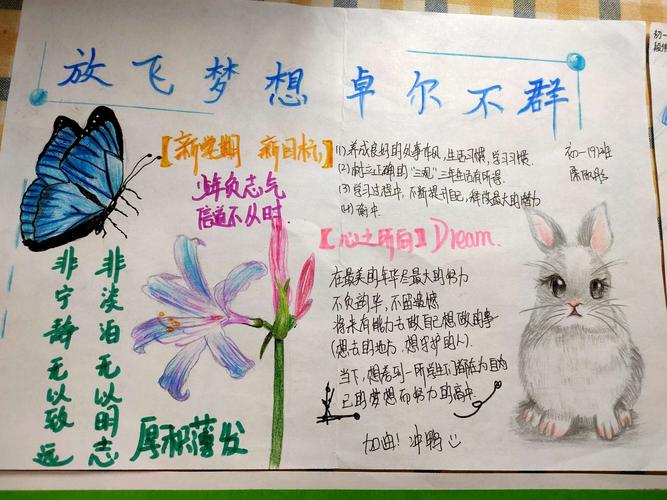 放飞梦想 卓尔不群
【新学期 新目标】
少年负志气
信道不从时.
(1).养成良好的处事作风,生活习惯,学习习惯.
(2)树立正确的“三观”三年生活有所得.
(3)学习过程中,不断提升自己,释放最大的潜力
(4)
初一(9)班
【心之所向】Dream.
在最美的年华尽最大的努力
不负韶华,不留遗憾
将来有能力去做自己想做的事
(想去的地方,想守护的人).
当下,想看到一所学生们都在为自
己的梦想而努力的高中.
加油!冲鸭
非淡泊无以明志
非宁静无以致远
厚积薄发
初一